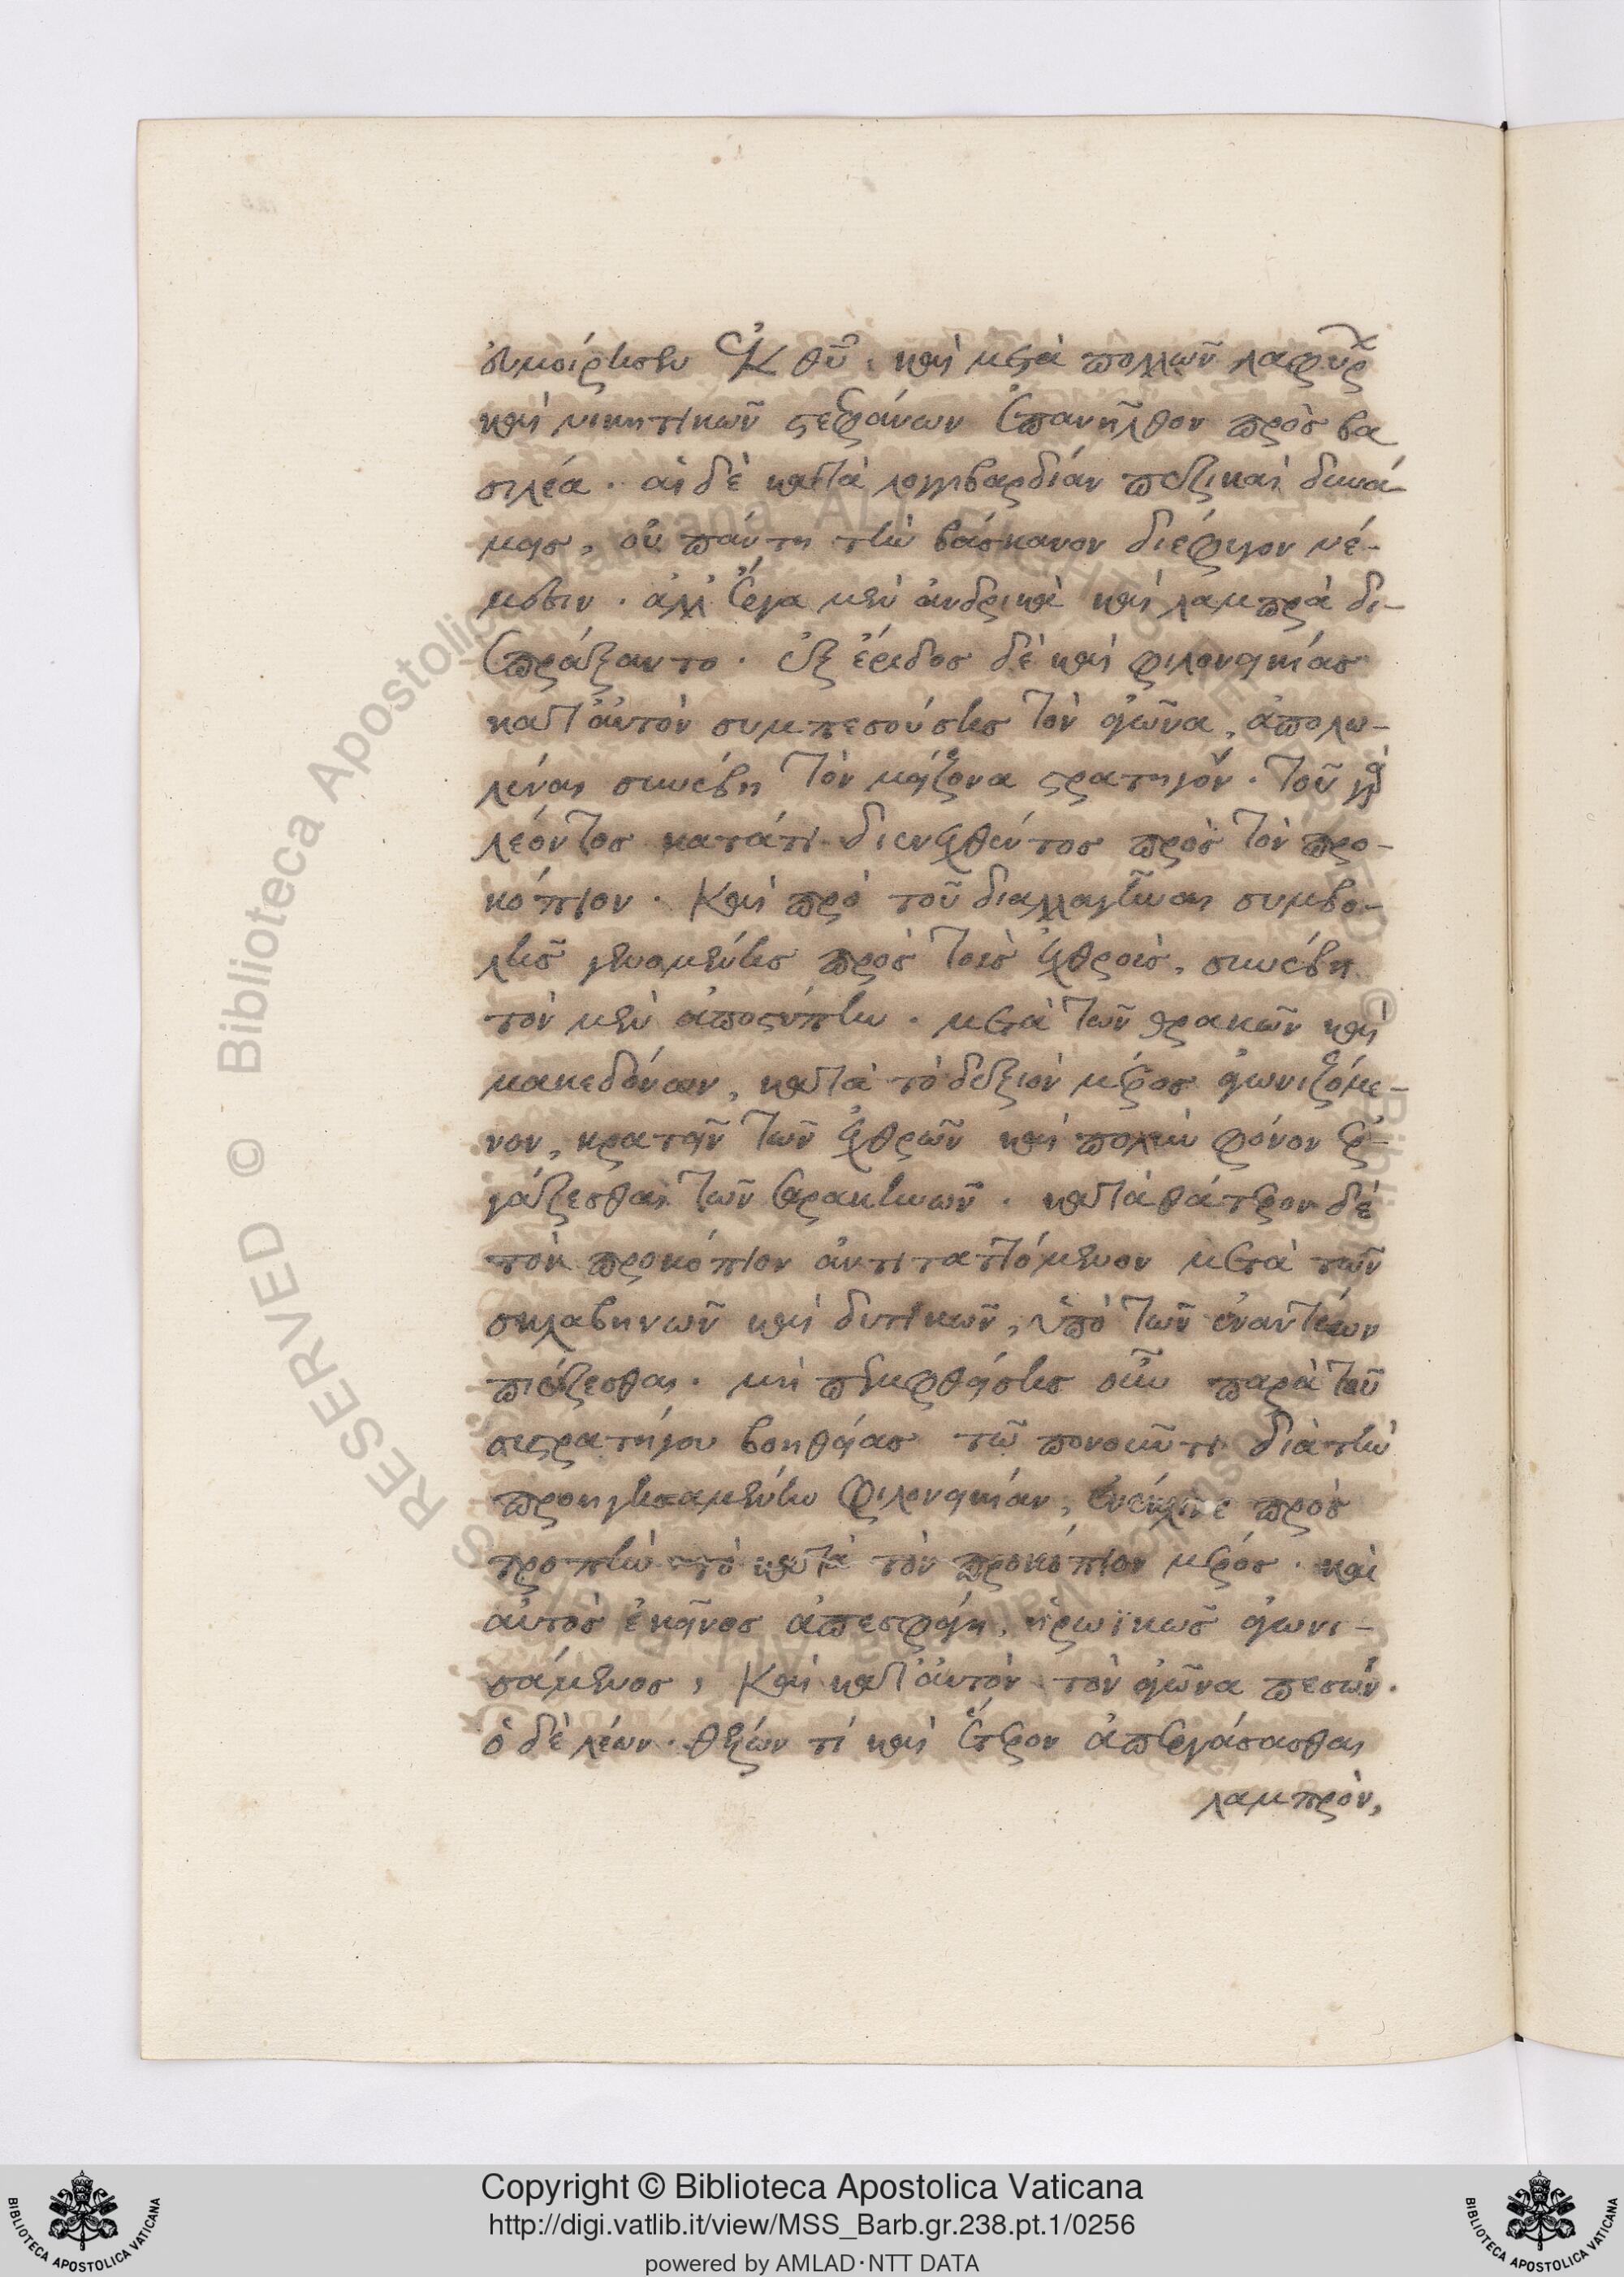 εὐμοίρησεν ἐκ θῦ, καὶ μετὰ πολλῶν λαφύρ
καὶ νικητικῶν στεφάνων ἐπανῆλθον πρὸς βα
σιλέα. αἱ δὲ κατὰ λογγιβαρδίαν πεζικαὶ δυνά-
μεις, οὐ πάντη τὴν βάσκανον διέφυγον νέ-
μεσιν. ἀλλ' ἔργα μὲν ἀνδρικὰ καὶ λαμπρὰ δι-
επράξαντο. ἐξ ἔριδος δὲ καὶ φιλονεικίας
κατ' αὐτὸν συμπεσούσης τὸν ἀγῶνα, ἀπολω-
λέναι συνέβη τὸν μείζονα στρατηγόν. τοῦ γὰρ
λέοντος κατάτι διενεχθέντος πρὸς τὸν προ-
κόπιον. καὶ πρὸ τοῦ διαλλαγῆναι συμβο-
λῆς γενομένης πρὸς τοὺς ἐχθροὺς, συνέβη
τὸν μὲν ἀποστύπην. μετὰ τῶν θρακῶν καὶ
μακεδόνων, κατὰ τὸ δεξιὸν μέρος ἀγωνιζόμε-
νον, κρατεῖν τῶν ἐχθρῶν καὶ πολὺν φόνον ἐρ-
γάζεσθαι τῶν σαρακηνῶν. κατὰ θάτερον δὲ
τὸν προκόπιον ἀντιταττόμενον μετὰ τῶν
σκλαβηνῶν καὶ δυτικῶν, ὑπὸ τῶν ἐναντίων
πιέζεσθαι. μὴ πεμφθείσης οὖν παρὰ τοῦ
συστρατήγου βοηθείας τῷ πονοῦντι διὰ τὴν
προηγησαμένην φιλονεικίαν, ἐνέκλινε πρὸς
τροπὴν τὸ κατὰ τὸν προκόπιον μέρος. καὶ
αὐτὸς ἐκεῖνος ἀπεσφάγη, ἡρωϊκῶς ἀγωνι-
σάμενος, καὶ κατ' αὐτὸν τὸν ἀγῶνα πεσών.
ὁ δὲ λέων. θέλων τί καὶ ἕτερον ἀπεργάσασθαι
λαμπρὸν,
Copyright © Biblioteca Apostolica Vaticana
http://digi.vatlib.it/view/MSS_Barb.gr.238.pt.1/0256
powered by AMLAD·NTT DATA
BIBLIOTECA APOSTOLICA VATICANA
BIBLIOTECA APOSTOLICA VATICANA